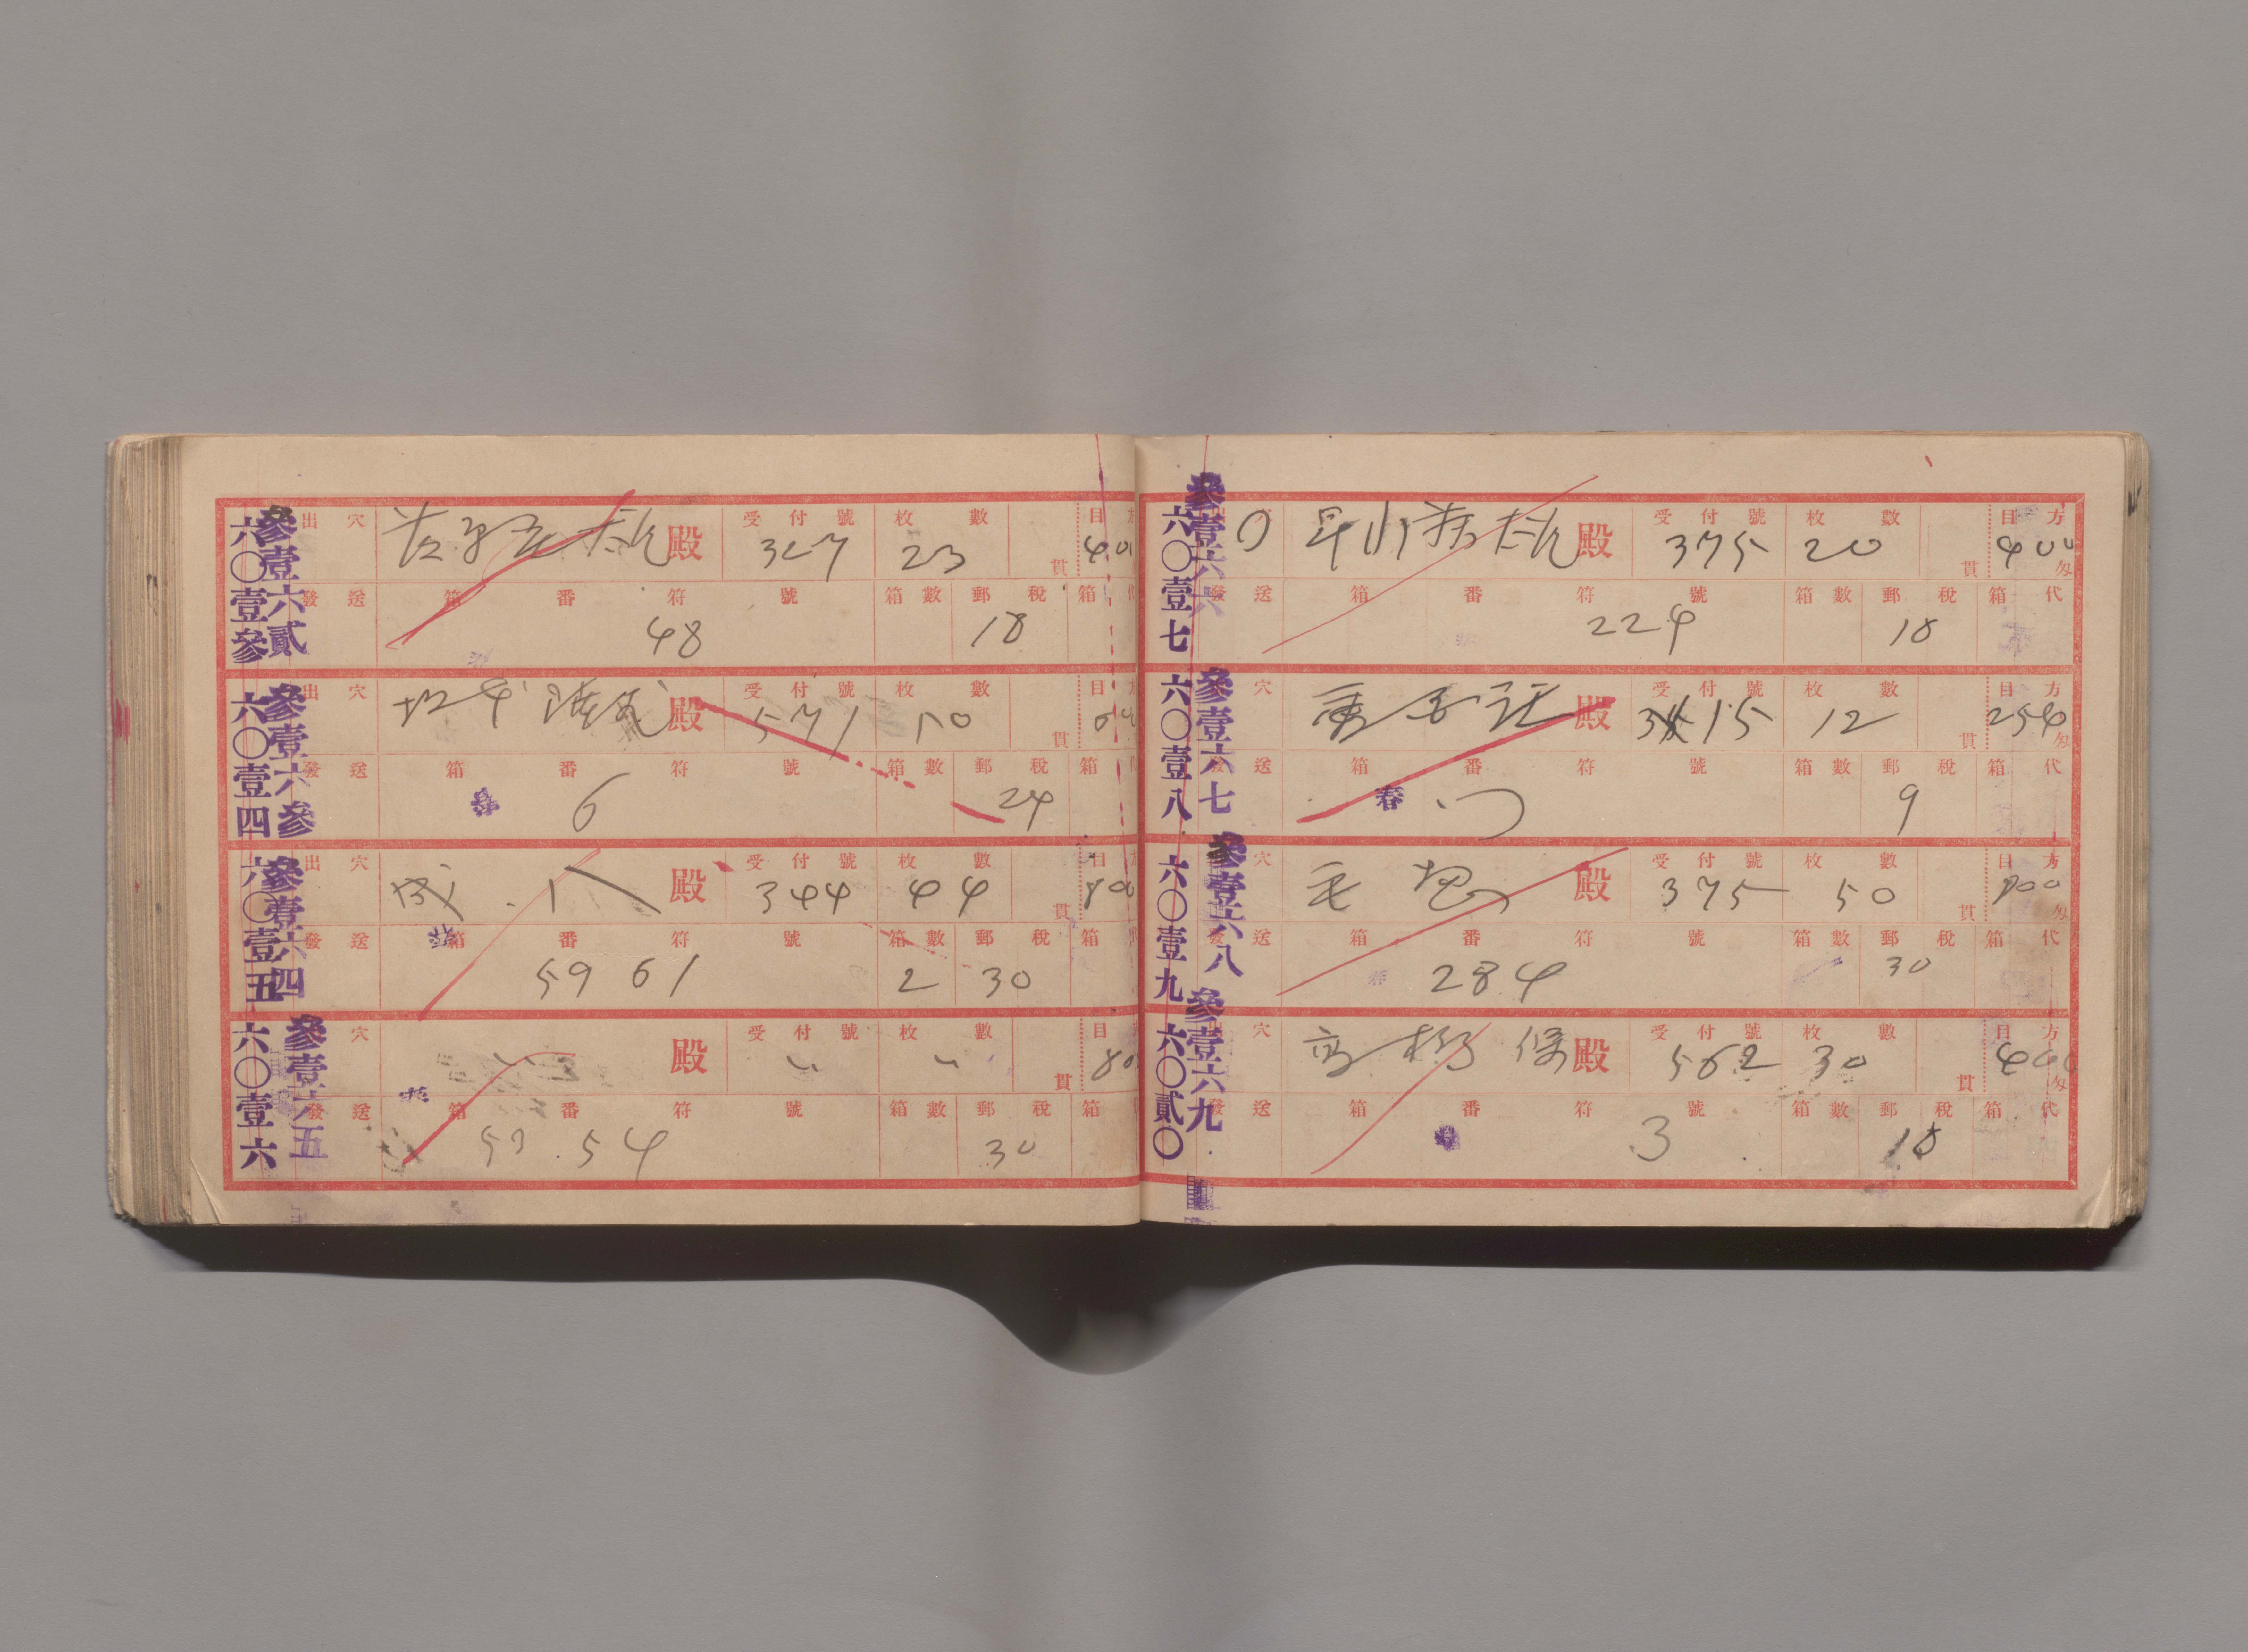 六〇壹參 參壹六貳
出穴 殿 受付號 327 枚數 23 貫 目方 400
發送 箱番符號 48 箱數 郵稅 18 箱代
六〇壹四 參壹六參
出穴 殿 受付號 571 枚數 10 貫 目方
發送 箱番符號 春 6 箱數 郵稅 24 箱代
六〇壹五 參壹六四
出穴 殿 受付號 344 枚數 44 貫 目方 800
發送 箱番符號 59 61 箱數 2 郵稅 30 箱代
六〇壹六 參壹六五
穴 〃 殿 受付號 〃 枚數 〃 貫 目方 800
發送 箱番符號 53.54 箱數 郵稅 30 箱代
六〇壹七 參壹六六
殿 受付號 375 枚數 20 貫 目方 400 匁
發送 箱番符號 224 箱數 郵稅 18 箱代
六〇壹八 參壹六七
穴 殿 受付號 枚數 12 貫 目方 250 匁
發送 箱番符號 春 箱數 郵稅 9 箱代
六〇壹九 參壹六八
穴 殿 受付號 375 枚數 50 貫 目方 800 匁
發送 箱番符號 春 284 箱數 郵稅 30 箱代
六〇貳〇 參壹六九
穴 高橋 殿 受付號 562 枚數 30 貫 目方 400 匁
發送 箱番符號 春 3 箱數 郵稅 18 箱代